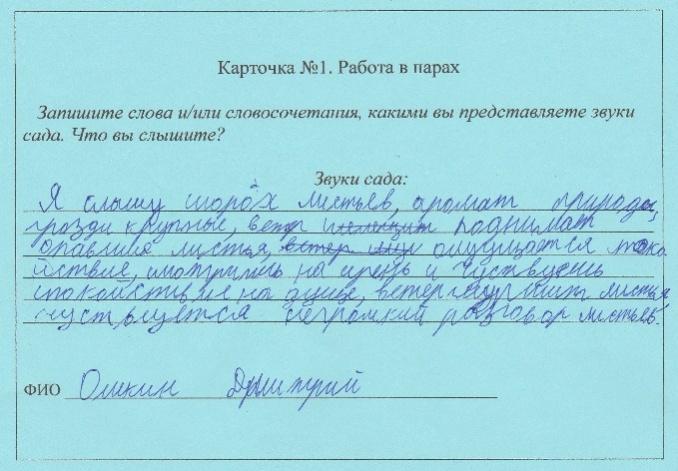 Карточка №1. Работа в парах
Запишите слова и/или словосочетания, какими вы представляете звуки
сада. Что вы слышите?
Звуки сада:
Я слышу шорох листьев, аромат природы,
грозди крупные, ветр поднимат
опавшие листья, ощущается
на и чуствуешь
спокойствие на душе, ветер листья,
чуствуется негромкий разговор листьев.
ФИО Ошкин Дмитрий